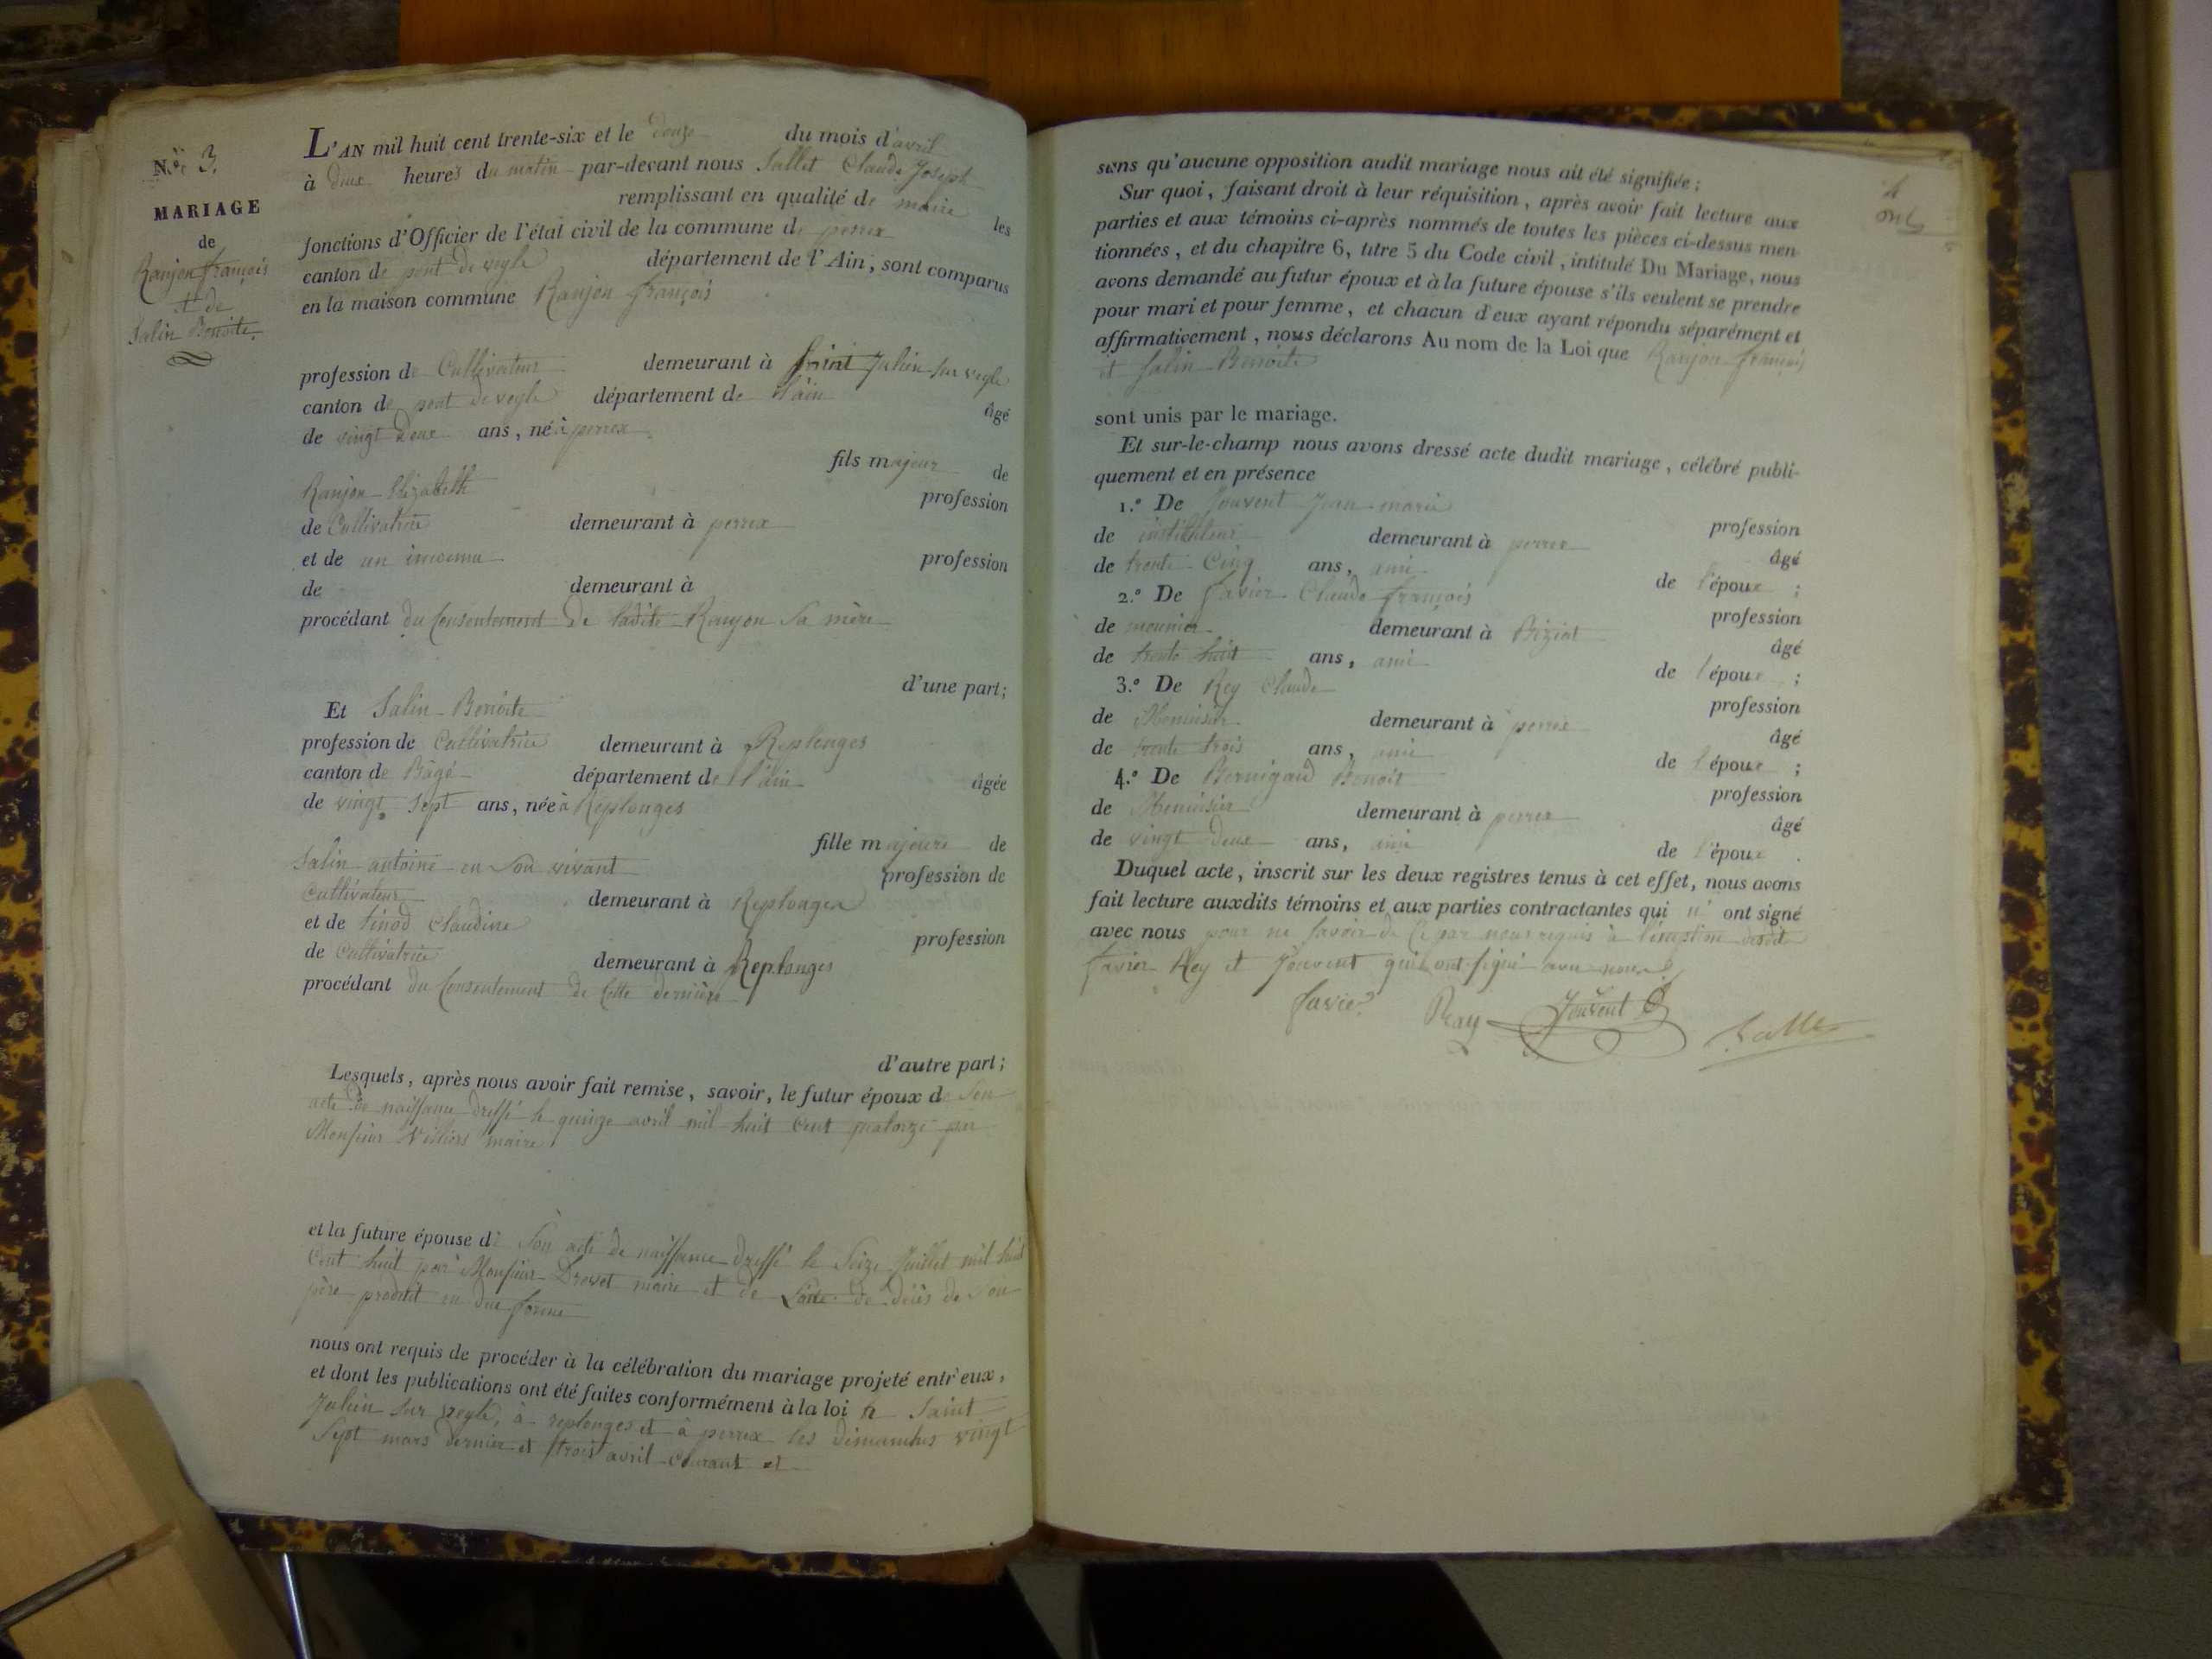 N.º 3.
MARIAGE
de
Ranjon françois
et de
Salin Benoite
L'AN mil huit cent trente-six et le douze du mois d'avril
à deux heures du matin par-devant nous Sallet Claude Joseph
remplissant en qualité de maire les
fonctions d'Officier de l'état civil de la commune de perrex
canton de pont de veyle département de l'Ain, sont comparus
en la maison commune Ranjon françois
profession de Cultivateur demeurant à Saint Julien sur veyle
canton de pont de veyle département de l'ain âgé
de vingt deux ans, né à perrex
fils majeur de
Ranjon Elizabeth profession
de Cultivatrice demeurant à perrex
et de un inconnu profession
de demeurant à
procédant du Consentement de ladite Ranjon Sa mère
d'une part;
Et Salin Benoite
profession de Cultivatrice demeurant à Replonges
canton de Bâgé département de l'ain âgée
de vingt sept ans, née à Replonges
fille majeure de
Salin antoine en son vivant profession de
Cultivateur demeurant à Replonges
et de tinod Claudine profession
de Cultivatrice demeurant à Replonges
procédant du Consentement de Cette dernière
d'autre part;
Lesquels, après nous avoir fait remise, savoir, le futur époux de Son
acte de naissance dressé le quinze avril mil huit cent quatorze par
Monsieur Villiers maire
et la future épouse de Son acte de naissance dressé le Seize Juillet mil huit
Cent huit par Monsieur Drevet maire et de de décès de Son
père produit en due forme
nous ont requis de procéder à la célébration du mariage projeté entr'eux,
et dont les publications ont été faites conformément à la loi à Saint
Julien sur veyle, à replonges et à perrex les dimanches vingt
Sept mars dernier et trois avril courant et
sans qu'aucune opposition audit mariage nous ait été signifiée;
Sur quoi, faisant droit à leur réquisition, après avoir fait lecture aux
parties et aux témoins ci-après nommés de toutes les pièces ci-dessus men-
tionnées, et du chapitre 6, titre 5 du Code civil, intitulé Du Mariage, nous
avons demandé au futur époux et à la future épouse s'ils veulent se prendre
pour mari et pour femme, et chacun d'eux ayant répondu séparément et
affirmativement, nous déclarons Au nom de la Loi que Ranjon françois
et Salin Benoite
sont unis par le mariage.
Et sur-le-champ nous avons dressé acte dudit mariage, célébré publi-
quement et en présence
1.º De Jouvent Jean marie profession
de instituteur demeurant à perrex âgé
de trente Cinq ans, ami de l'époux ;
2.º De favier Claude françois profession
de meunier demeurant à Biziat âgé
de trente huit ans, ami de l'époux ;
3.º De Rey Claude profession
de Menuisier demeurant à perrex âgé
de trente trois ans, ami de l'époux ;
4.º De Bernigaud Benoit profession
de Menuisier demeurant à perrex âgé
de vingt deux ans, ami de l'époux .
Duquel acte, inscrit sur les deux registres tenus à cet effet, nous avons
fait lecture auxdits témoins et aux parties contractantes qui n'ont signé
avec nous pour ne savoir de Ce par nous requis à l'exception desdit
favier Rey et Jouvent qui ont signé avec nous
favier Ray Jouvent Sallet